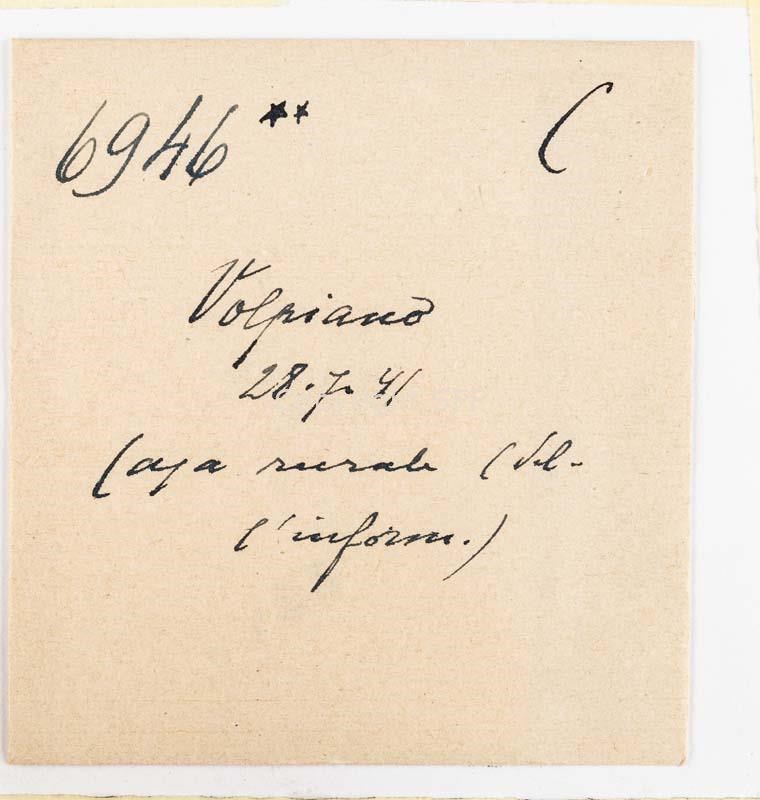 6946** C
Volpiano
28.7.41
Casa rurale (del-
l'inform.)